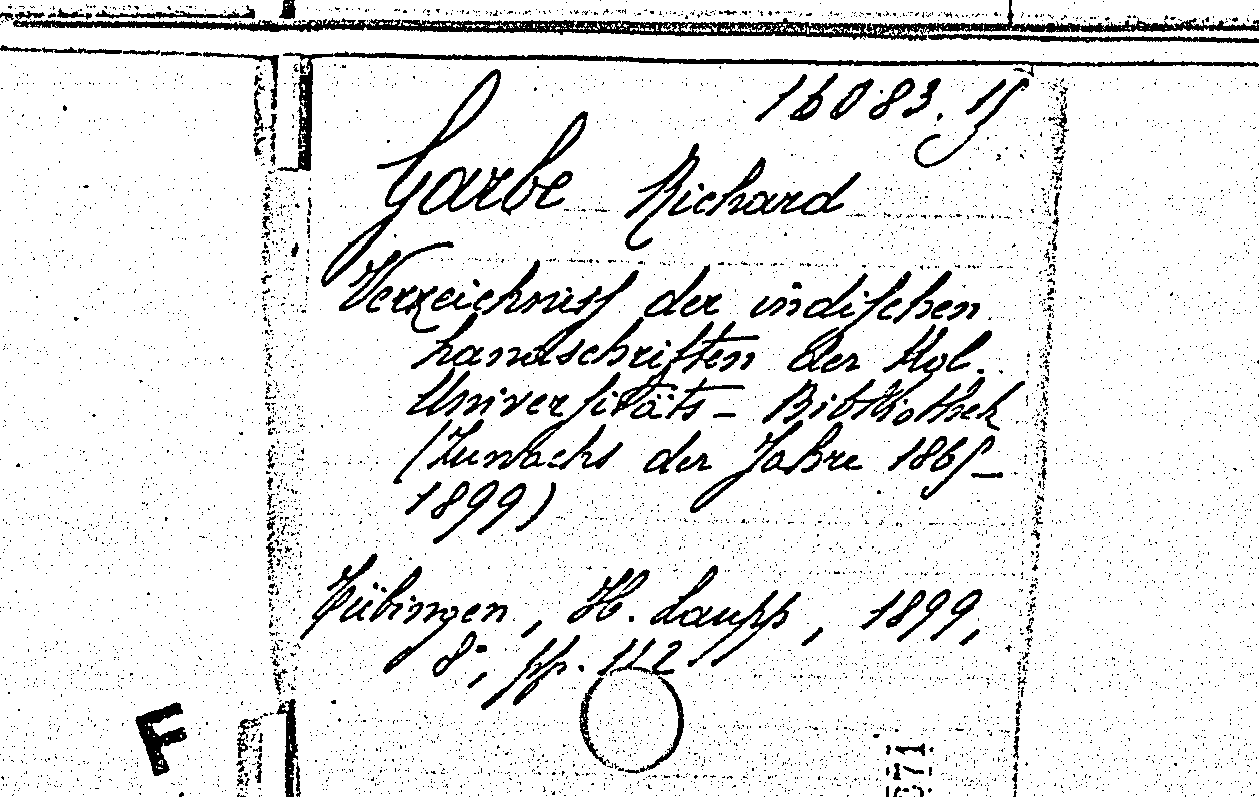 16083.15
Garbe Richard
Verzeichniss der indischen
handschriften der Kgl.
Universitäts-Bibliothek
(Zuwachs der Jahre 1865-
1899)
Tübingen, H. Laupp, 1899,
8°, pp. 112
F
571